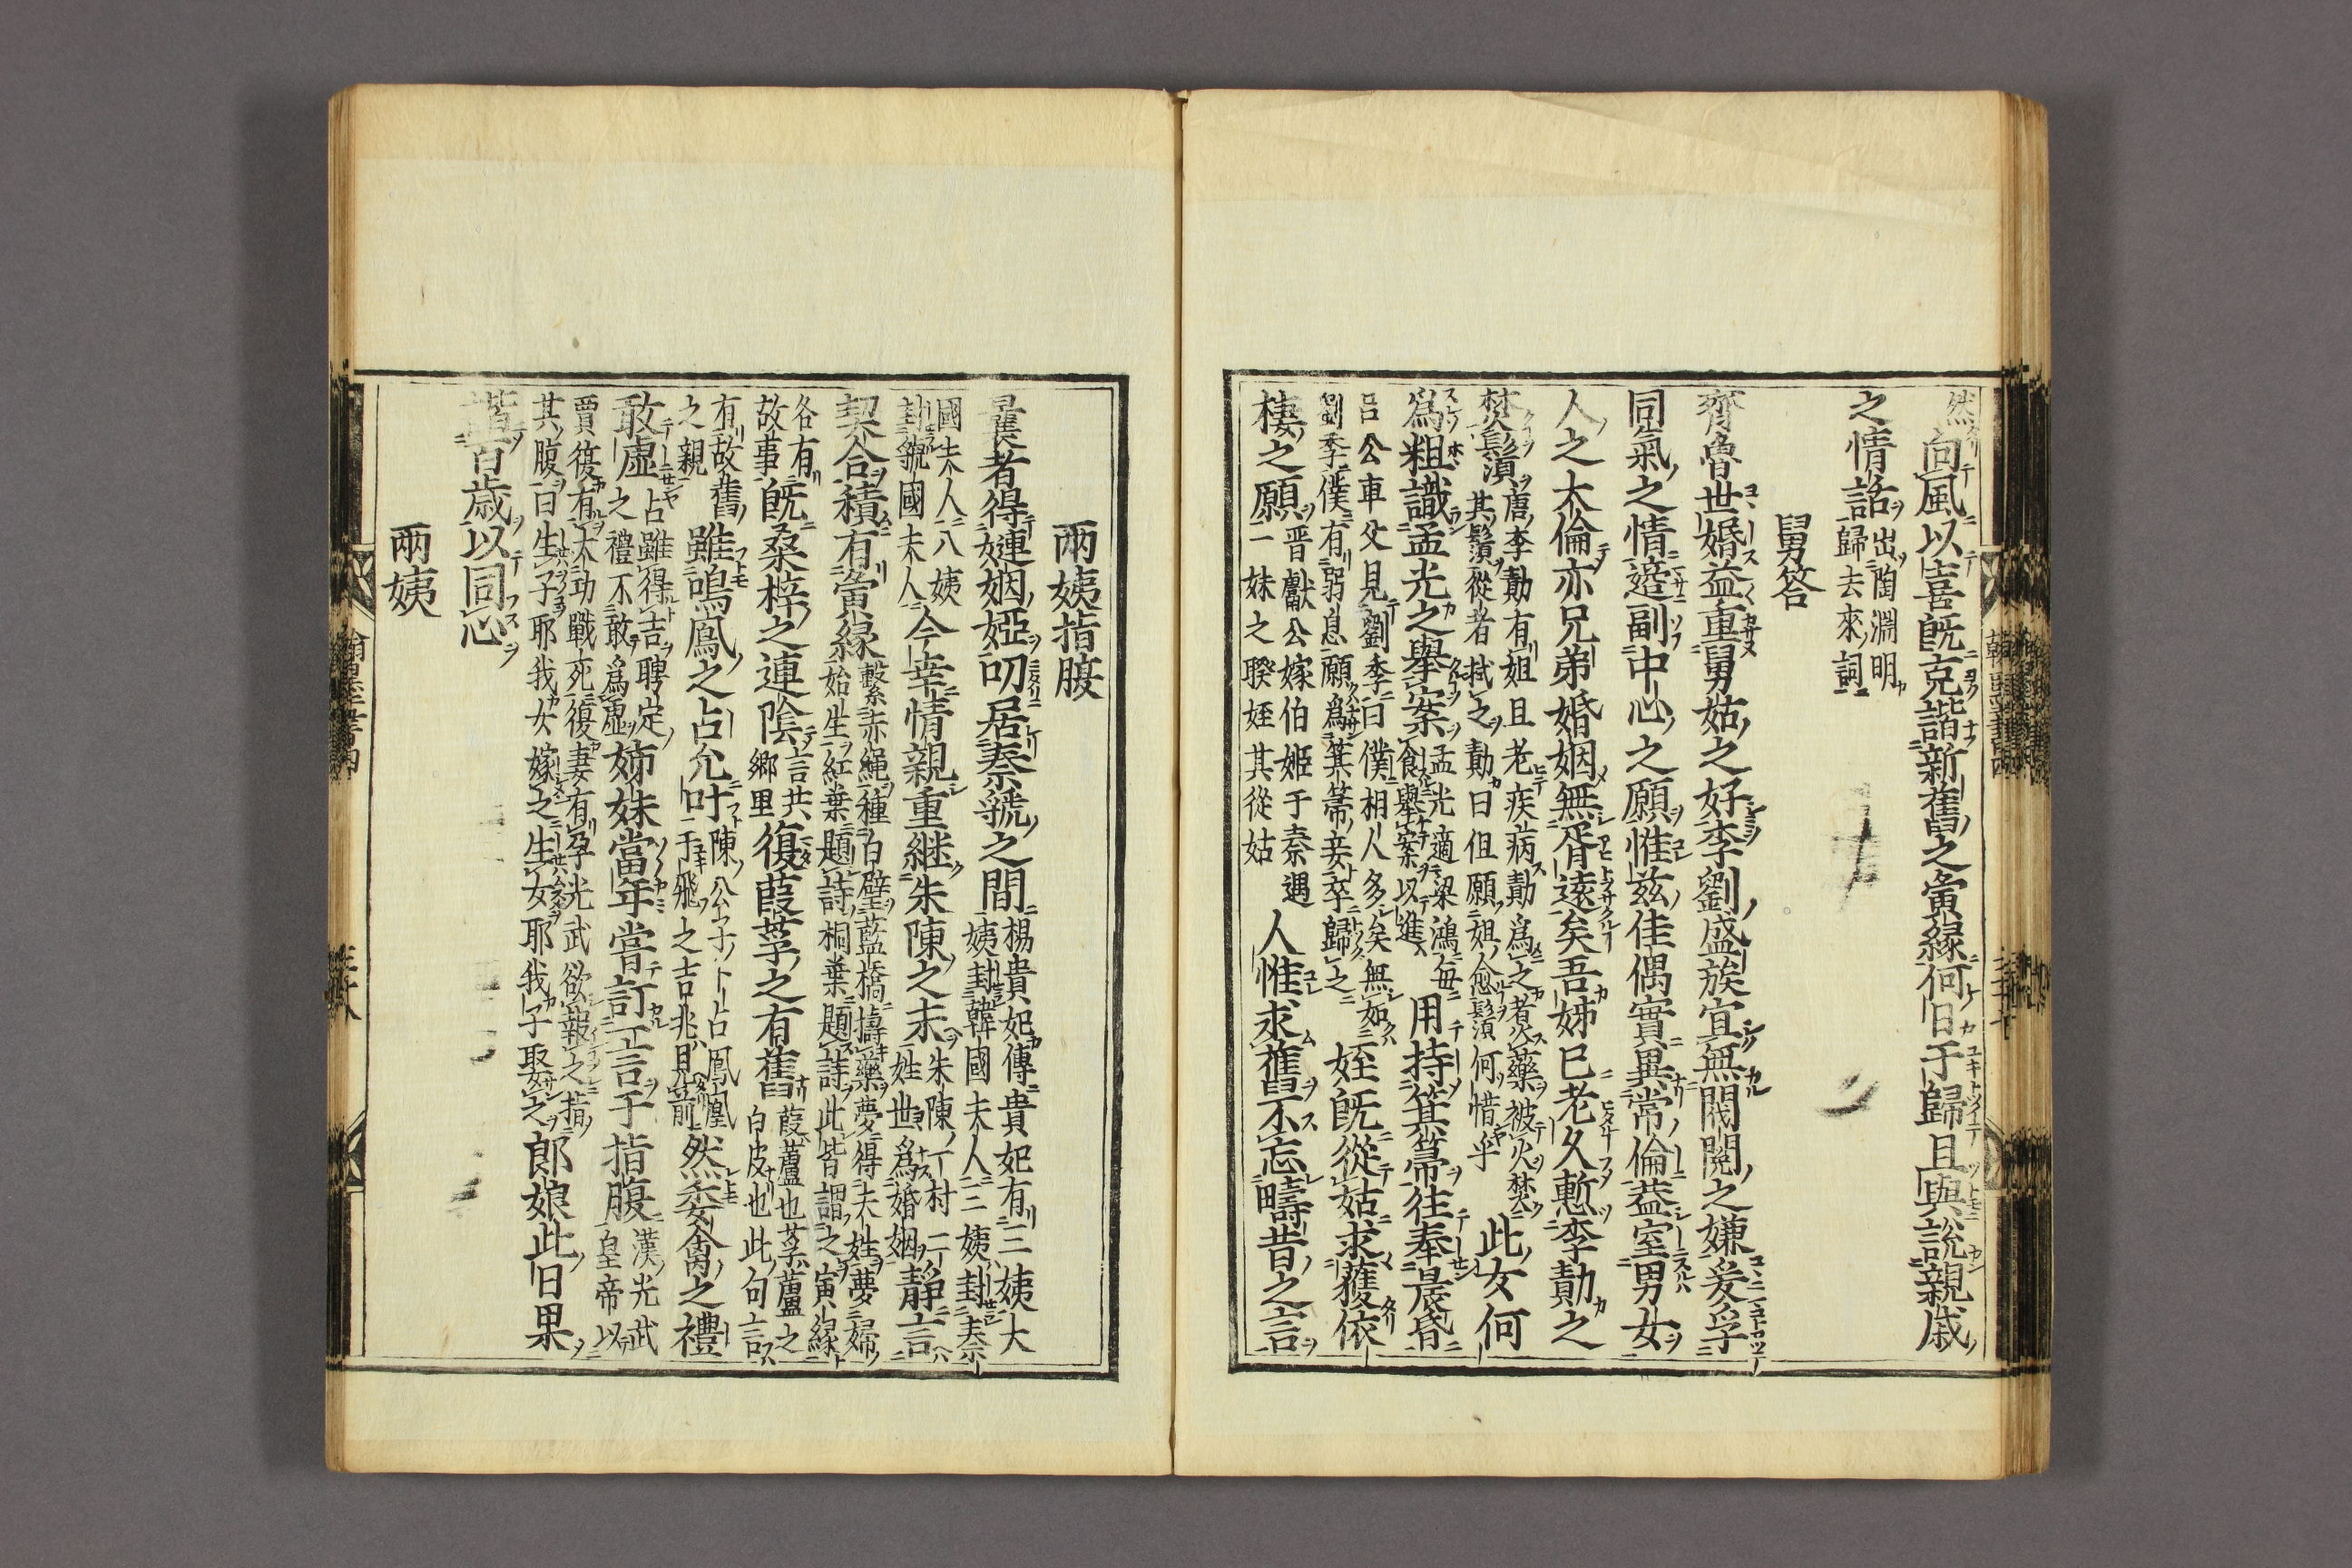 然向風以喜既克諧新舊之寅緣何日于歸且與說親戚
之情話出陶淵明歸去來詞
舅答
齊魯世婚益重舅姑之好李劉盛族宜無閥閱之嫌爰孚
同氣之情遂副中心之願惟兹佳偶實異常倫蓋室男女
人之大倫亦兄弟婚姻無胥遠矣吾姊已老久慙李勣之
焚鬚唐李勣有姐且老疾病勣爲之煮藥被火焚其鬚從者拭之勣曰但願姐愈鬚何惜乎此女何
爲粗識孟光之舉案孟光適梁鴻每食舉案以進用持箕箒往奉晨昏
呂公車父見劉季曰僕相人多矣無如劉季僕有弱息願爲箕箒妾卒歸之姪既從姑求蒦依
棲之願晋獻公嫁伯姬于秦遇一妹之睽姪其從姑人惟求舊不忘疇昔之言
兩姨指腹
曩者得連姻婭叨居秦虢之間楊貴妃傳貴妃有三姨大姨封韓國夫人三姨封秦
國夫人八姨封虢國夫人今幸情親重継朱陳之末朱陳一村二姓世爲婚姻靜言
契合積有寅緣繫赤繩種白璧藍橋擣藥夢得夫姓夢婦始生紅葉題詩桐葉題詩此皆謂之寅緣
各有故事既桑梓之連陰言共鄉里復葭莩之有舊葭蘆也莩蘆之白皮也此句言
有故舊之親雖鳴鳳之占允叶陳公子卜占鳳凰于飛之吉兆見前然委禽之禮
敢虛占雖得吉聘定之禮不敢爲虛姊妹當年嘗訂一言于指腹漢光武皇帝以
賈復有大功戰死復妻有孕光武欲報之指其腹曰生子耶我女嫁之生女耶我子娶之郎娘此日果
諧百歲以同心
兩姨